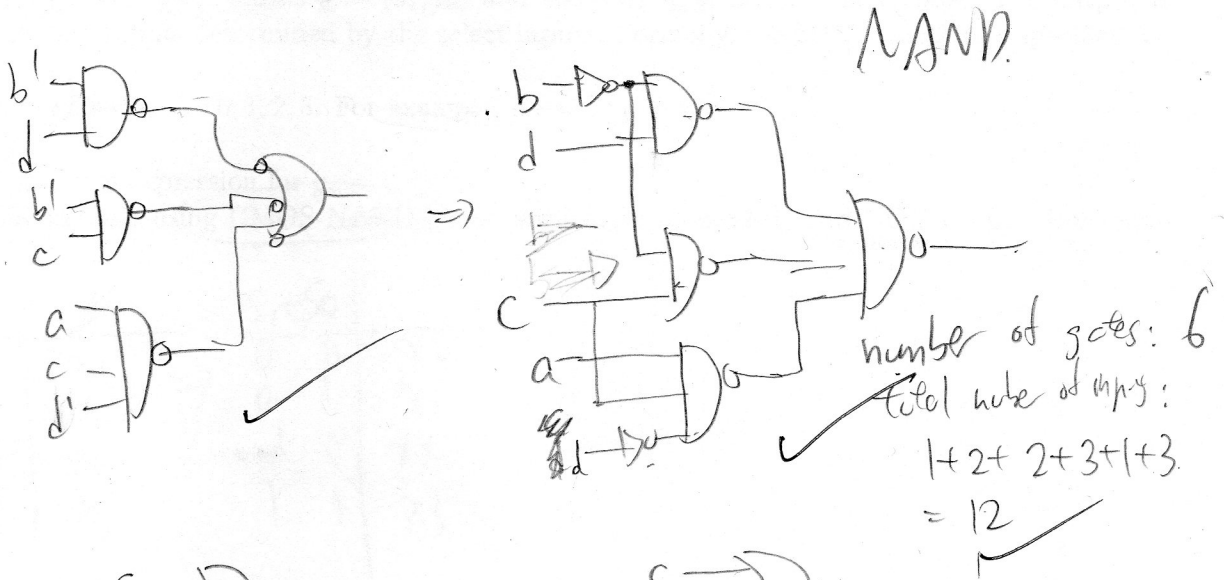 NAND.
b'
d
b'
c
a
c
d'
=>
b
d
c
a
d
number of gates: 6
total number of inputs:
1+2+2+3+1+3
= 12
c
c